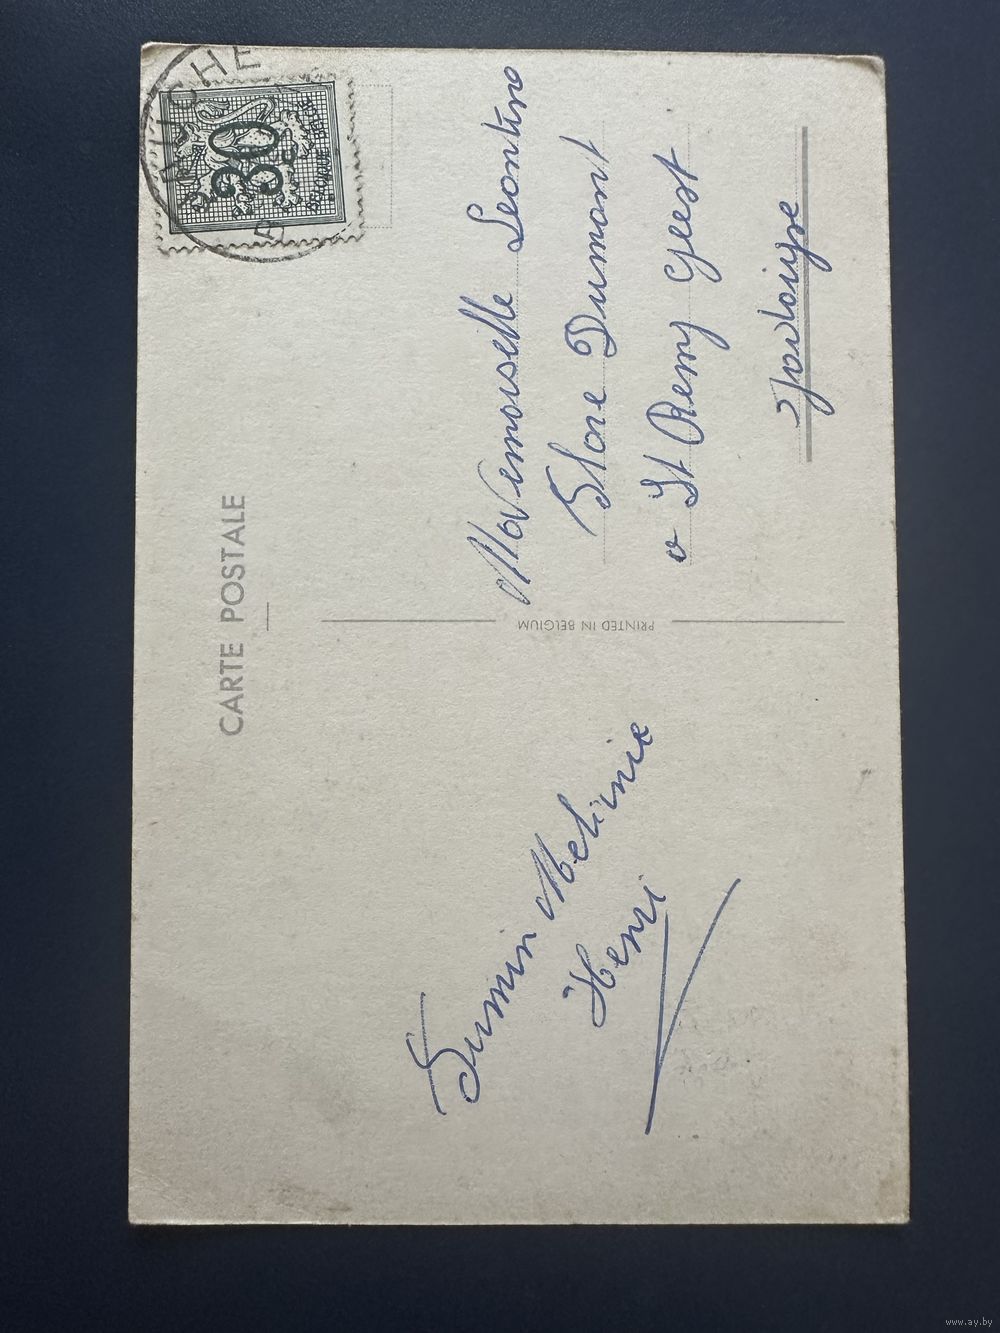 CARTE POSTALE
HUCHE
30
BELGIQUE BELGIE
PRINTED IN BELGIUM
Mademoiselle Leontine
Dumont
St Remy Geest
Jodoigne
Melinie
Henri
www.ay.by